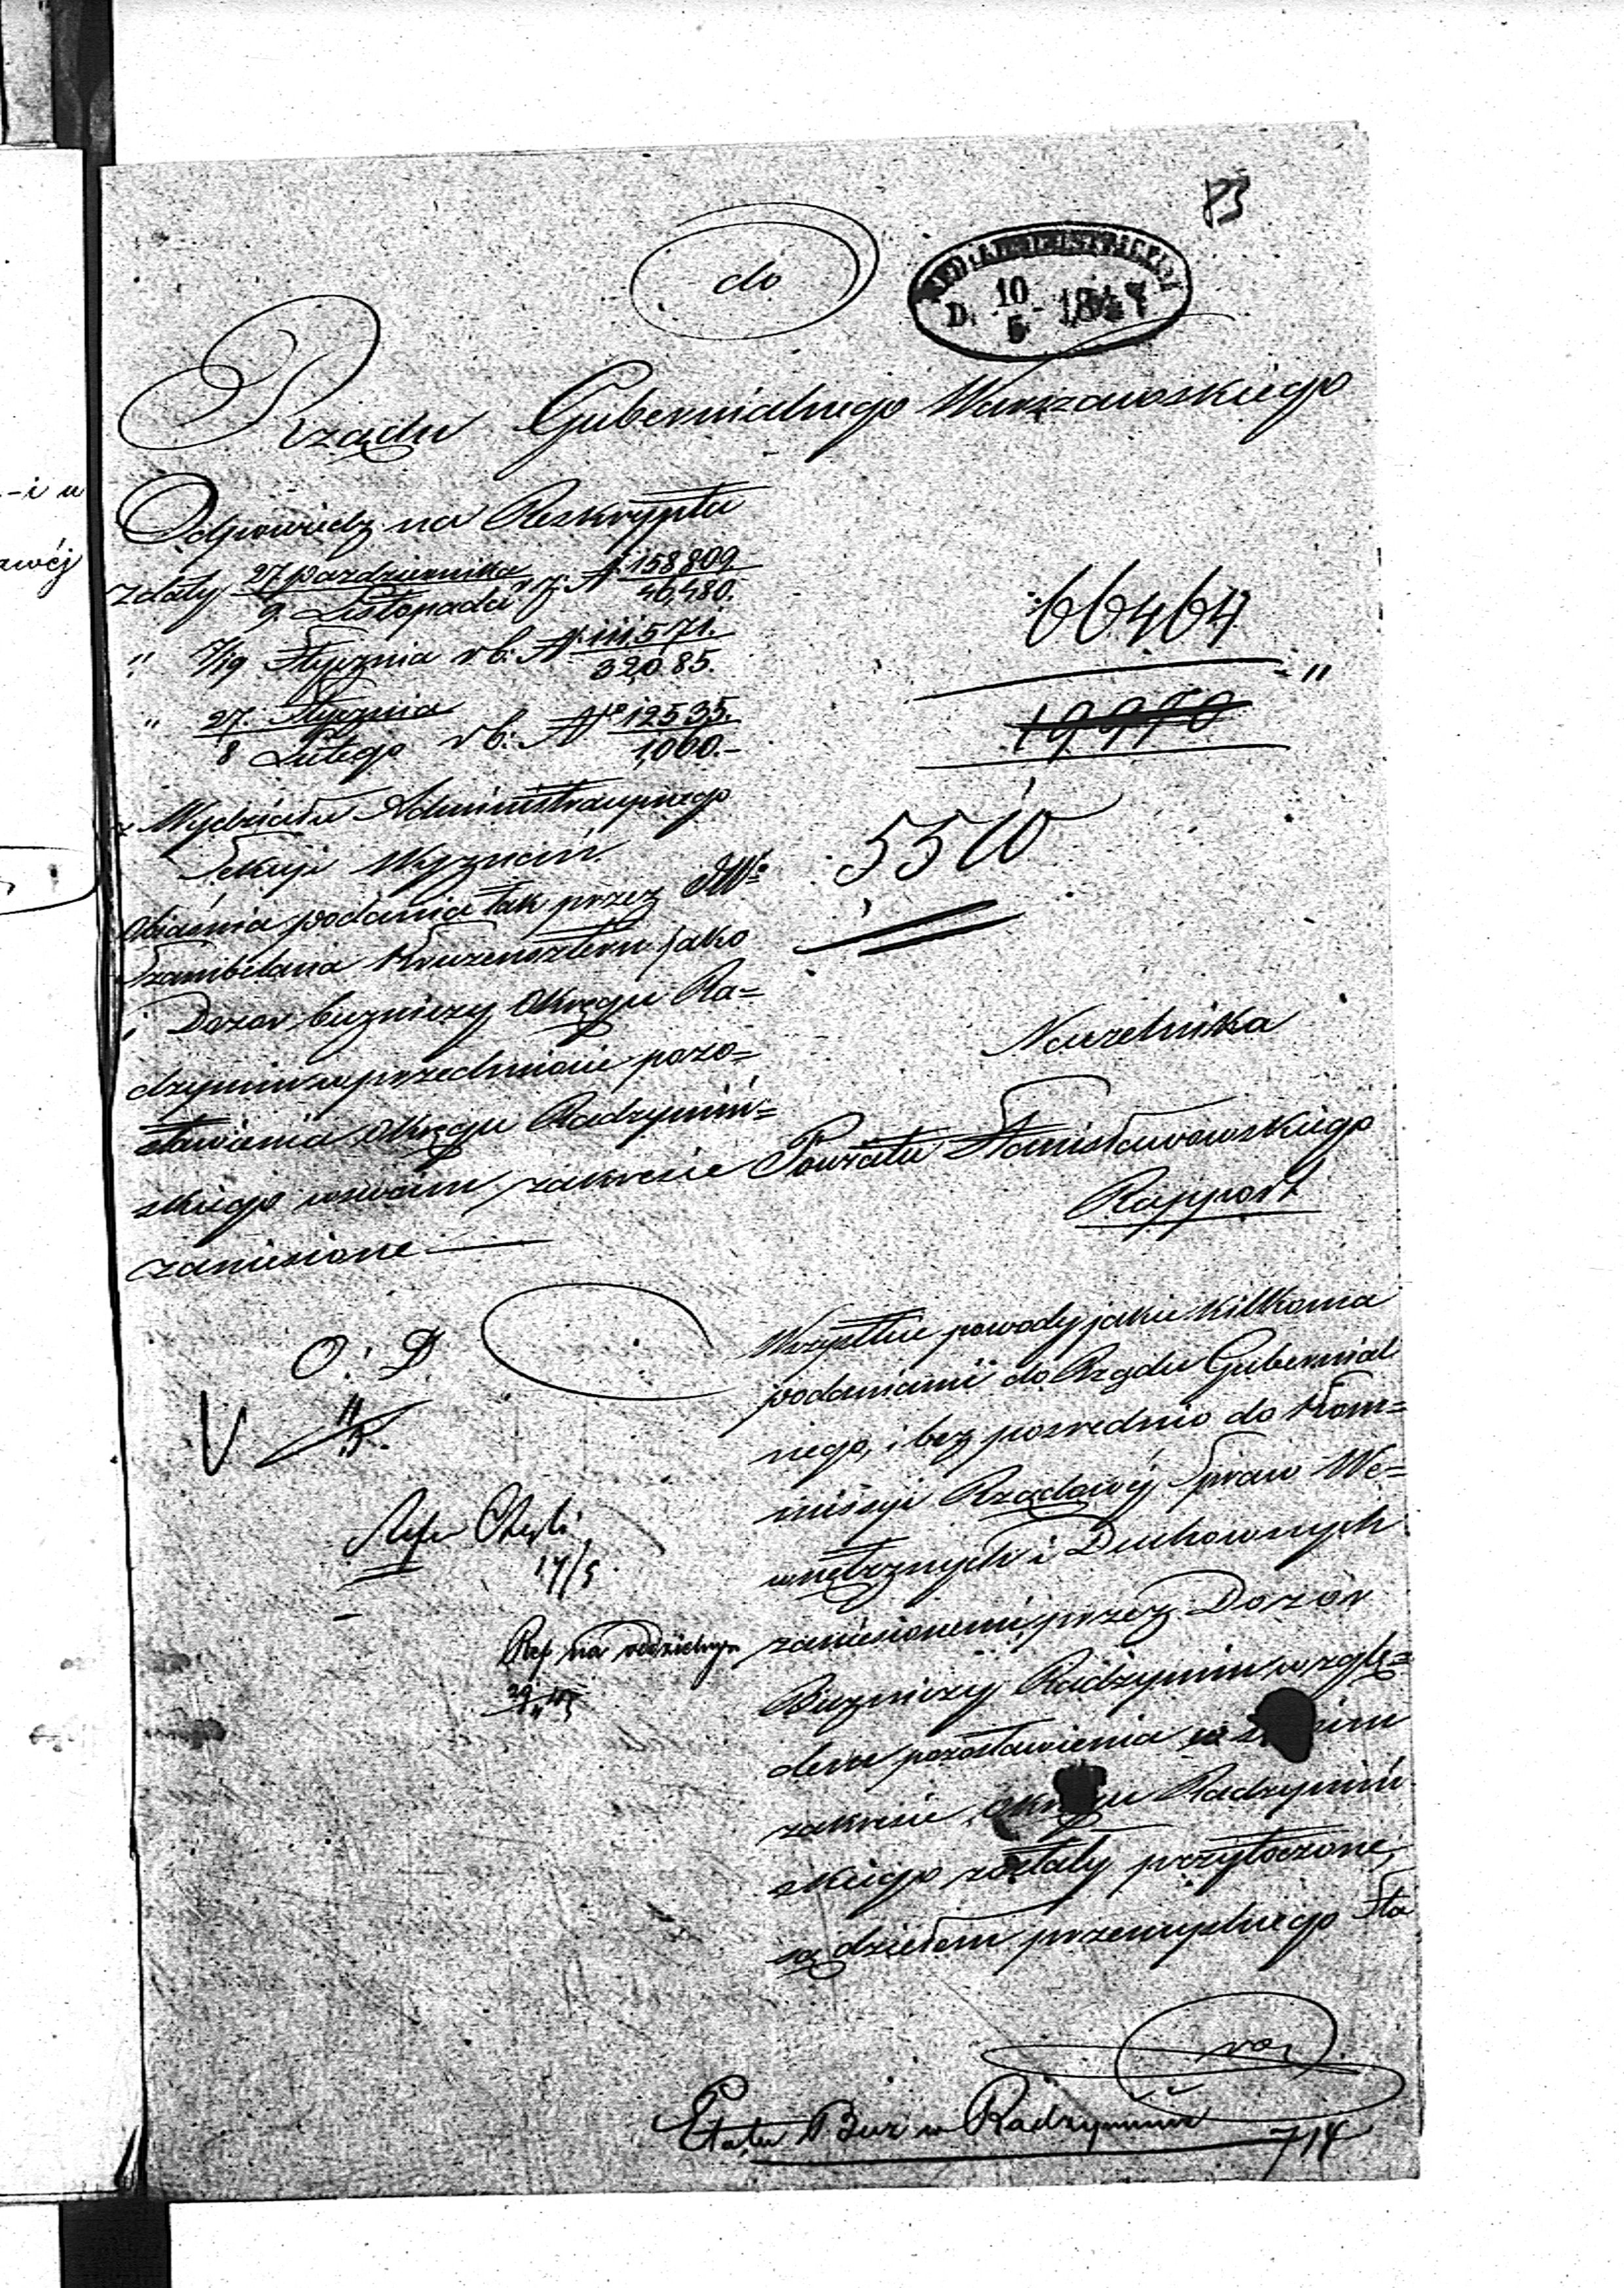 83
do
WYD: ADMINISTRACYJNY
D. 10/5 1847
Rządu Gubernialnego Warszawskiego
Odpowiedz na Reskrypta
z daty 27 Pazdziernika / 9. Listopada r z. N 158809 / 46,480.
" 7/19 Stycznia r b: N 111,571. / 32,085.
" 27. Stycznia / 8 Lutego r b: No 12535. / 1,060.-
z Wydziału Administracyjnego
Sekcyi Wyznań.
66464
19970
5510
Obiaśnia podania tak przez JW
Szambelana Kruzensztern jako
i Dozor bużniczy Okręgu Ra=
dzymin w przedmiocie pozo=
stawienia Okręgu Radzymiń=
skiego w swoim zakresie
zaniesione
Naczelnika
Powiatu Stanisławowskiego
Rapport
O: D
11/5.
17/5
Ref na
Wszystkie powody jakie kilkoma
podaniami do Rządu Gubernial
nego, i bez posrednio do Kom=
missyi Rządowéj Spraw We=
wnętrznych i Duchownych
zaniesionemi, przez Dozór
Bużniczy Radzymin wzglę=
dem pozostawienia w
zakresie Okręgu Radzymiń
skiego zostały przytoczone,
są dziełem przemyslnego Sta
Etatu Buż w Radzyminie 714
-i u